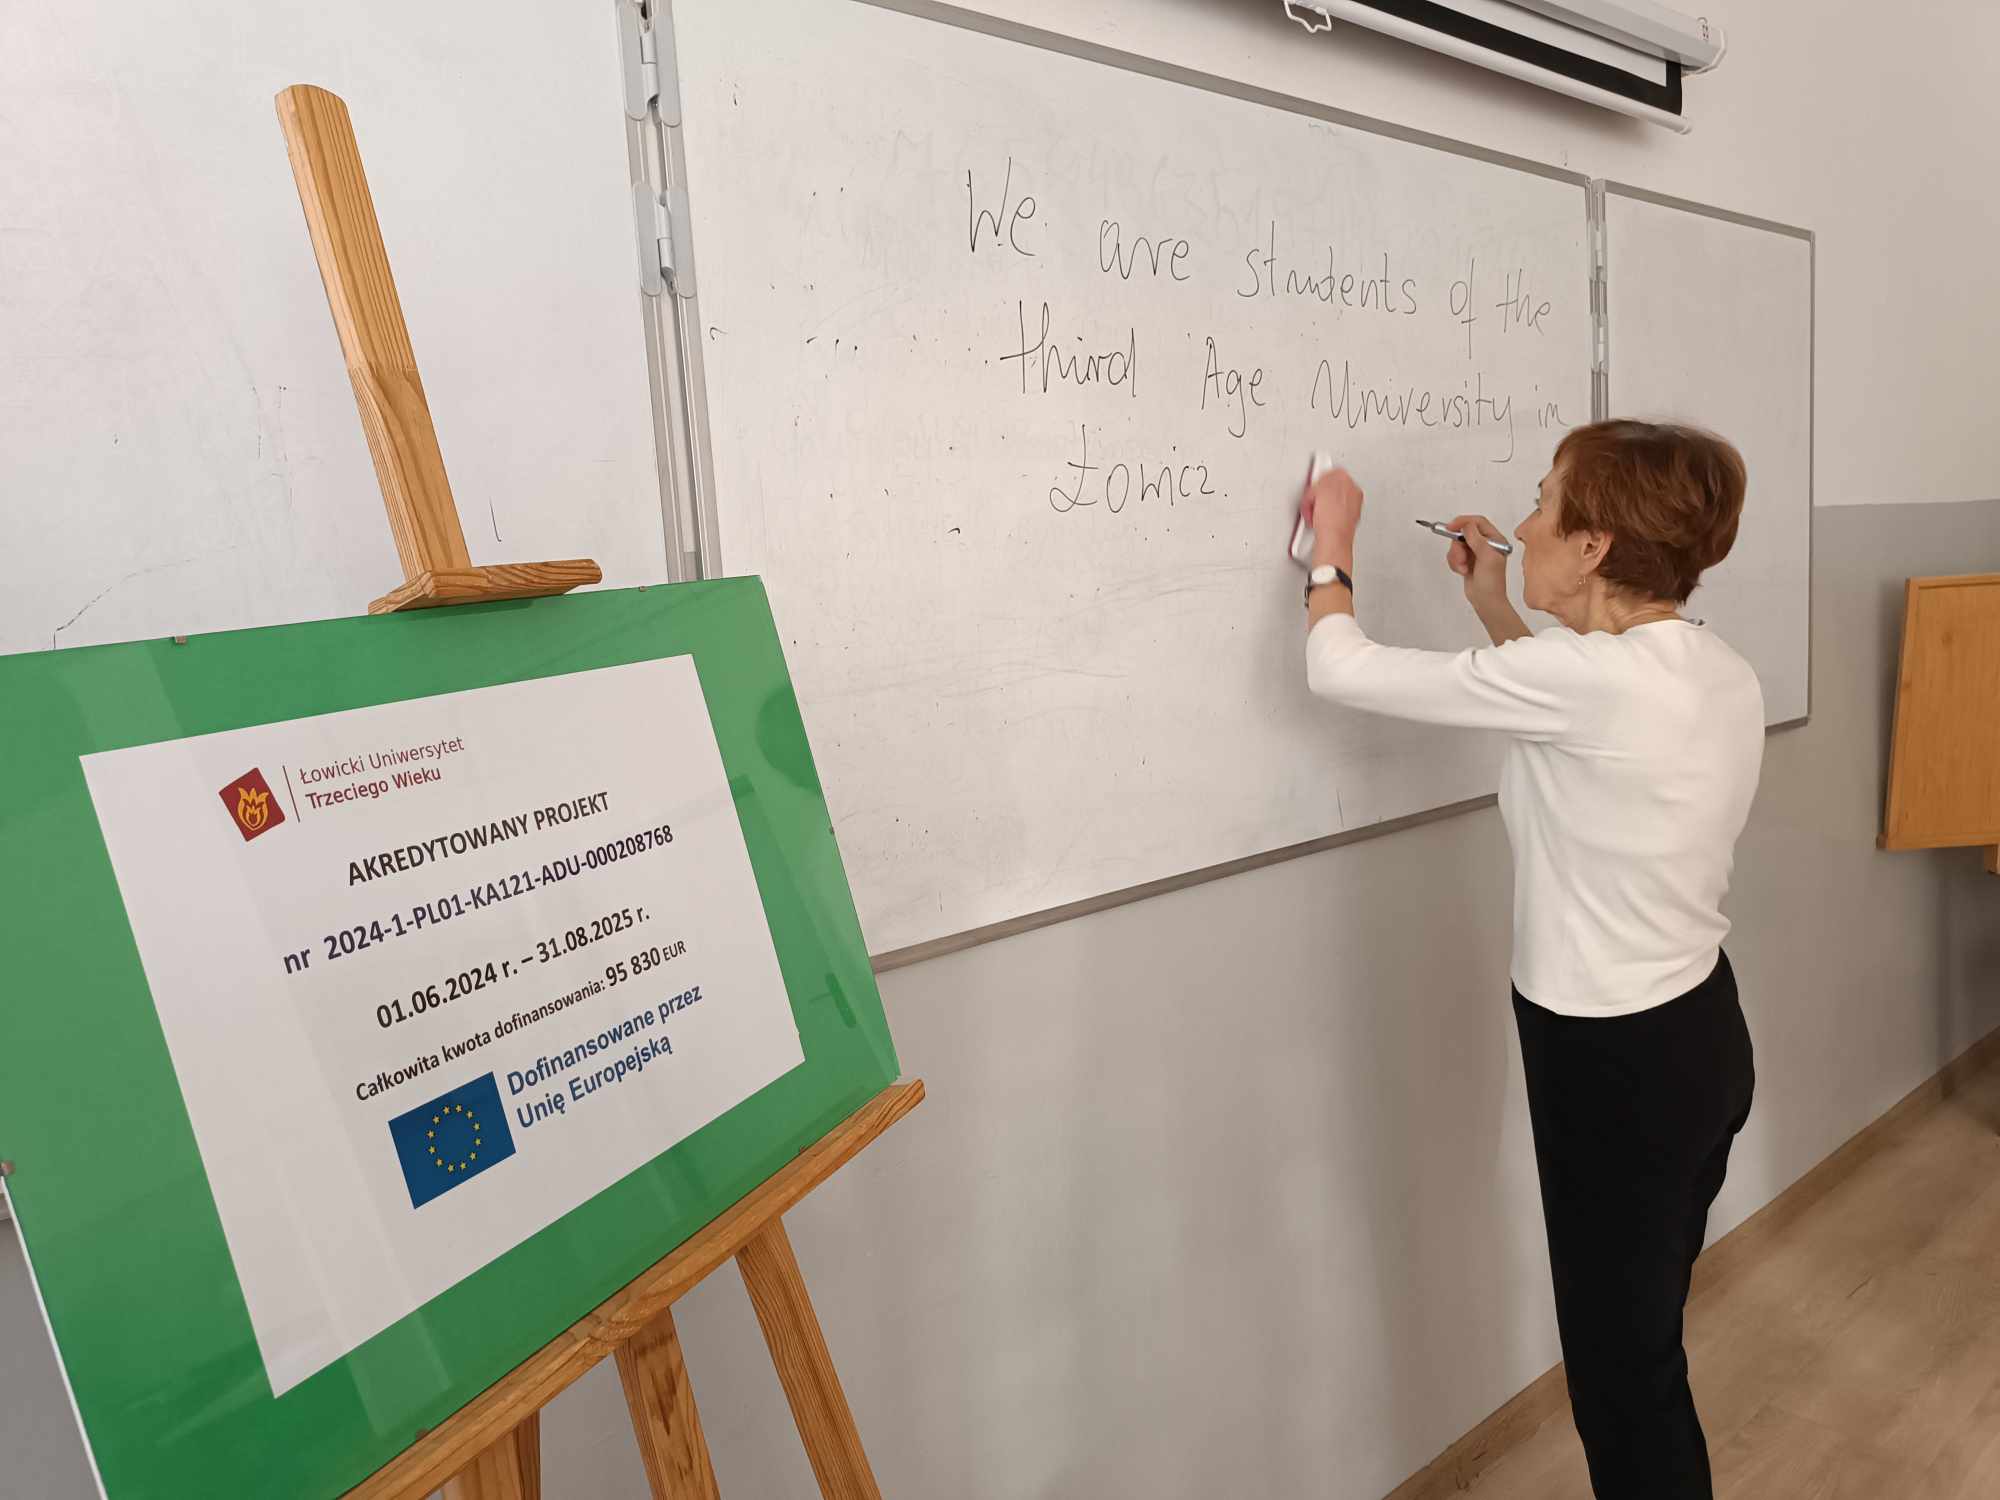 We are students of the
third Age University in
Łowicz.
Łowicki Uniwersytet
Trzeciego Wieku
AKREDYTOWANY PROJEKT
nr 2024-1-PL01-KA121-ADU-000208768
01.06.2024 r. – 31.08.2025 r.
Całkowita kwota dofinansowania: 95 830 EUR
Dofinansowane przez
Unię Europejską